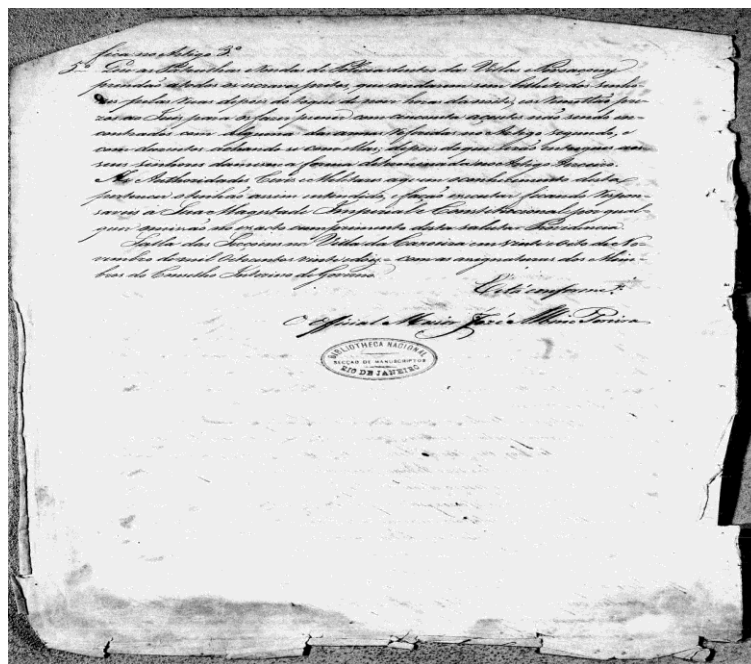 fica no Artigo 3º
5º Que as Patrulhas e Rondas de Policia dentro da Villas e Povaçoens
prendaõ a todos os escravos pretos, que andarem sem bilhete dos senho-
res pelas ruas depois do toque de nove horas da noite, os
ao Juiz para os fazer punir com cincoenta açoites não sendo en-
contrados com alguma das armas referidas no Artigo segundo, e
com duzentos achando se com ellas, depois do que serão entregues aos
seus senhores da forma determinada no Artigo terceiro.
As Authoridades Civis e Militares a quem o conhecimento desta
pertencer o tenhão assim entendido, e fação executar ficando respon-
saveis a Sua Magestade Imperial e Constitucional por qual-
quer omissão no exacto cumprimento desta
Salla das Sessoens na Villa da Cacoeira em vinte e oito de No-
vembro de mil oitocentos vinte e dois = com as assignaturas dos Mem-
bros do Conselho Interino do Governo
Está conforme
O Official Maior José
BIBLIOTHECA NACIONAL
SECÇÃO DE MANUSCRIPTOS
RIO DE JANEIRO